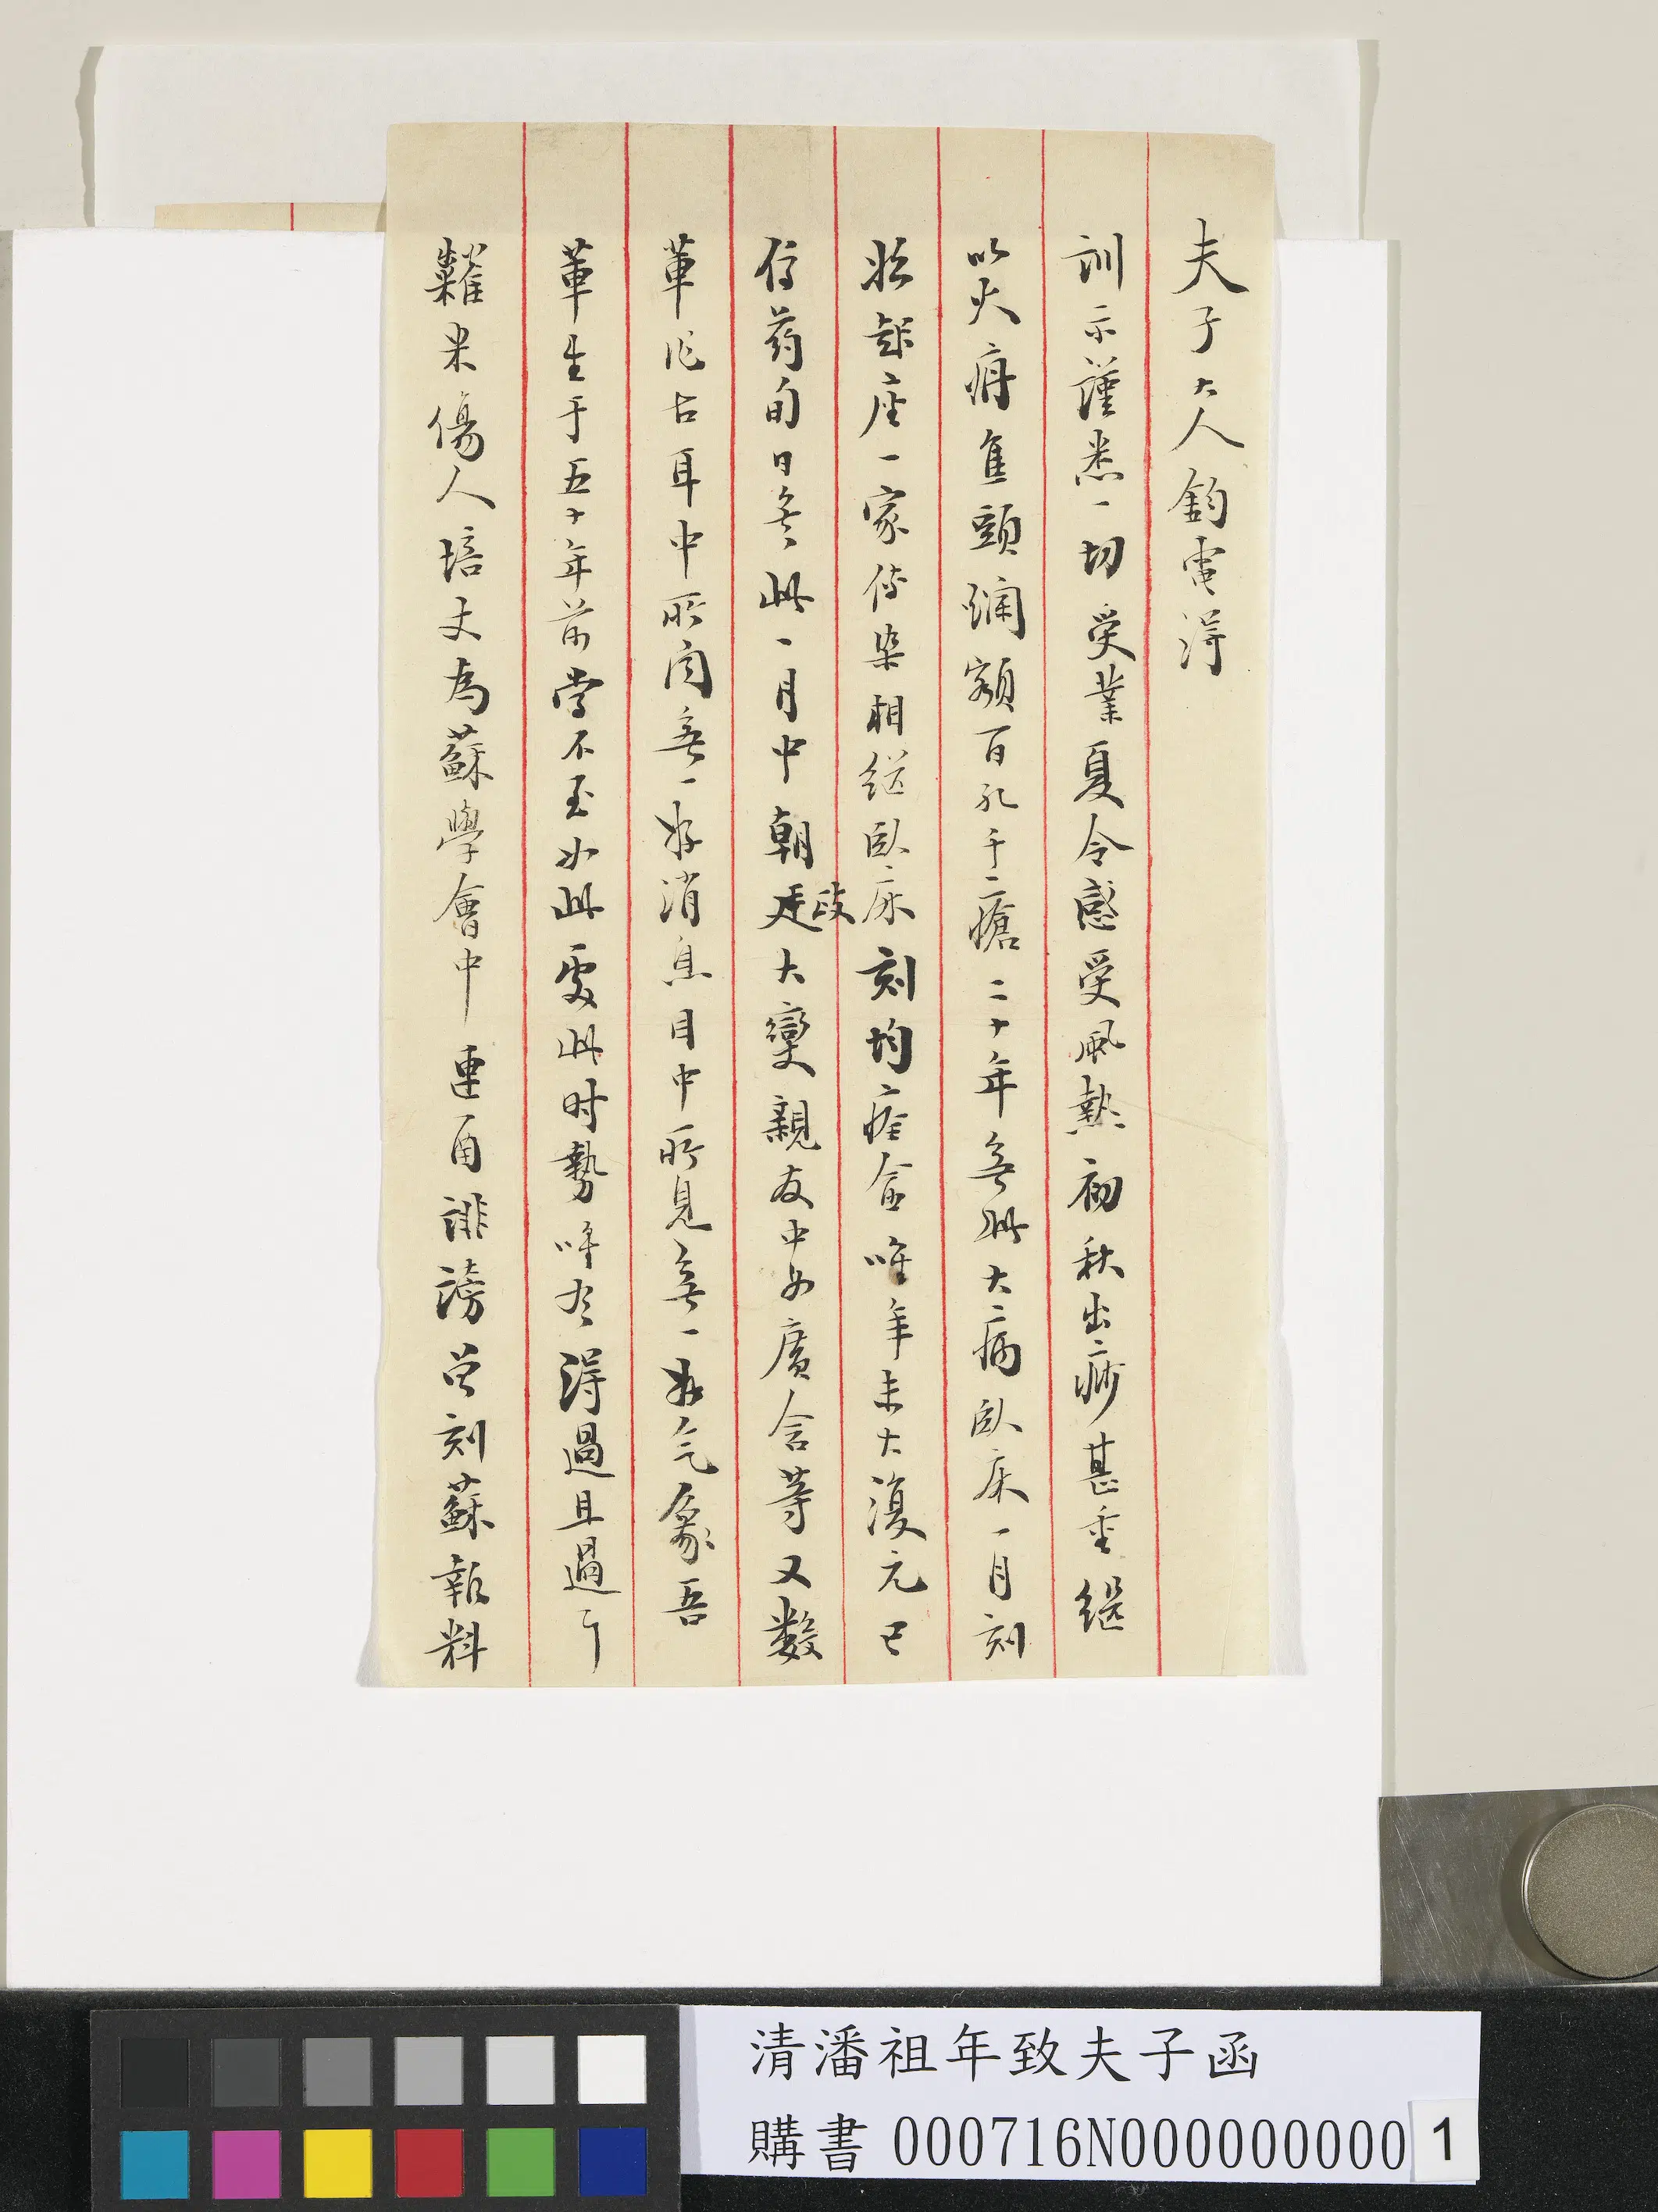 夫子大人鈞電得
訓示謹悉一切受業夏令感受風熱初秋出痧甚重繼
以火痈焦頭爛額百孔千瘡二十年無此大病臥床一月刻
始起座一家傳染相繼臥床刻均痊愈唯年未大復元已
停药旬日矣此一月中朝政大變親友中如廣含等又数
輩作古耳中所聞無一好消息目中所見無一好气象吾
輩生于五十年前嘗不至如此處此时勢唯有得過且過了
糴米傷人培丈為蘇學會中連面誹謗曾刻蘇報料
清潘祖年致夫子函
購書 000716N000000000 1